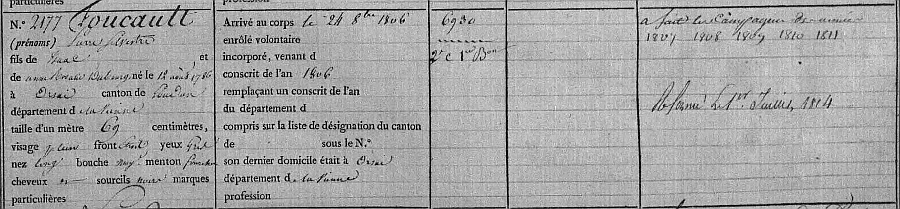 N.° 2177 Foucault
(prénoms) Pierre Silvestre
fils de Isaac et
de anne né le 12 août 1786
à Orsai canton de Loudun
département d e la Vienne
taille d'un mètre 69 centimètres,
visage plein front yeux gris
nez long bouche moy. menton
cheveux et sourcils noirs marques
particulières
Arrivé au corps le 24 8bre 1806
enrôlé volontaire
incorporé, venant d
conscrit de l'an 1806
remplaçant un conscrit de l'an
du département d
compris sur la liste de désignation du canton
de sous le N.°
son dernier domicile était à Orsai
département d e la Vienne
profession
6930
2e C 1er Bon
a fait les Campagnes des années
1807 1808 1809 1810 1811
Réformé le 1er Juillet 1814